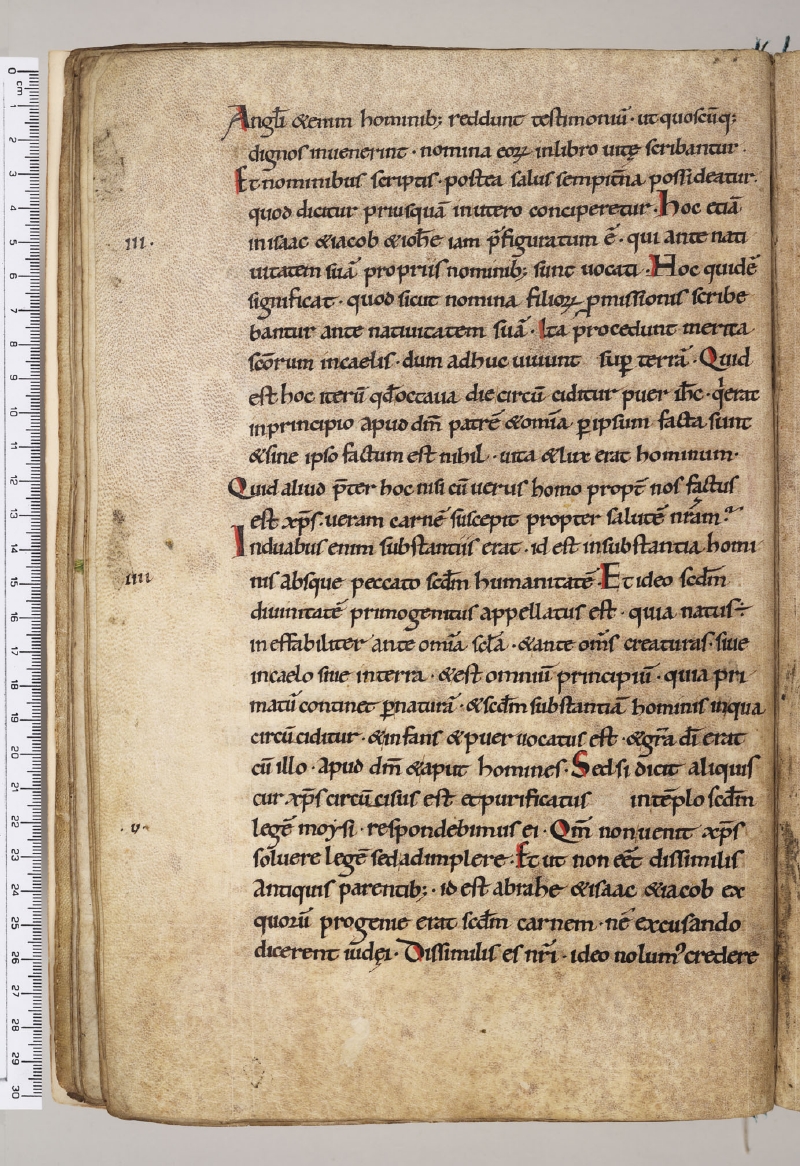 Angłi &enim hominib; reddunt testimoniū · ut quoscūq;
dignos inuenerint · nomina eoꝝ inlibro uitę scribantur ·
Et nominibus scriptis · postea salus sempit̄na possideatur.
quod dicitur priusquā inutero conciperetur · Hoc etiā
III · inisaac &iacob &ioħe iam p̄figuratum ē · qui ante nati
uitatem suā propriis nominib; sunt uocati · Hoc quidē
significat · quod sicut nomina filioꝝ ꝓmissionis scribe
bantur ante natiuitatem suā · Ita procedunt merita
sc̄orum incaelis · dum adhuc uiuunt sup̄ terrā · Quid
est hoc iterū qđ octaua die circū ciditur puer iħc · q̇ erat
inprincipio apud dm̄ patrē &om̄ia ꝑipsum facta sunt
&sine ipso factum est nihil · uita &lux erat hominum ·
Quid aliud p̄ter hoc nisi cū uerus homo propt̄ nos factus
est xp̄s · ueram carnē suscepit propter salutē nr̄am ·
Induabus enim substantiis erat · id est insubstantia homi
IIII nis absque peccato scđm humanitatē · Et ideo scđm
diuinitatē primogenitus appellatus est · quia natus ÷
ineffabiliter ante om̄ia scła · &ante om̄s creaturas · siue
incaelo siue interra · &est omniū principiū · quia pri
matū continet ꝑnaturā · &scđm substantiā hominis inqua
circū ciditur · &infans &puer uocatus est · &gr̄a dī erat
cū illo · apud dm̄ &aput homines · Sed si dicit aliquis
cur xp̄s circūcisus est etpurificatus intēplo scđm
· v · legē moysi · respondebimus ei · Qm̄ non uenit xp̄s
soluere legē sed adimplere · Et ut non eēt dissimilis
Antiquis parentib; · id est abrahe &isaac &iacob ex
quorū progenie erat scđm carnem · nē excusando
dicerent iudęi · Dissimilis es nr̄i · ideo nolumꝰ credere